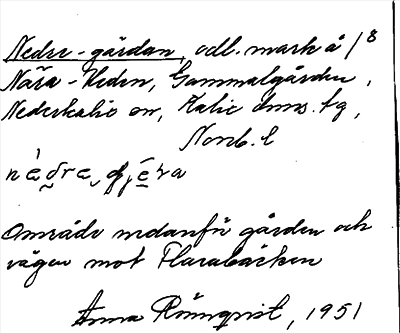 Nedre-gärdan, odl. mark å 1/8
Nära-Heden, Gammalgården,
Nederkalix sn, Kalix dms. tg,
Norrb. l
Område nedanför gården och
vägen mot Flarabäcken
Anna Rönnqvist, 1951